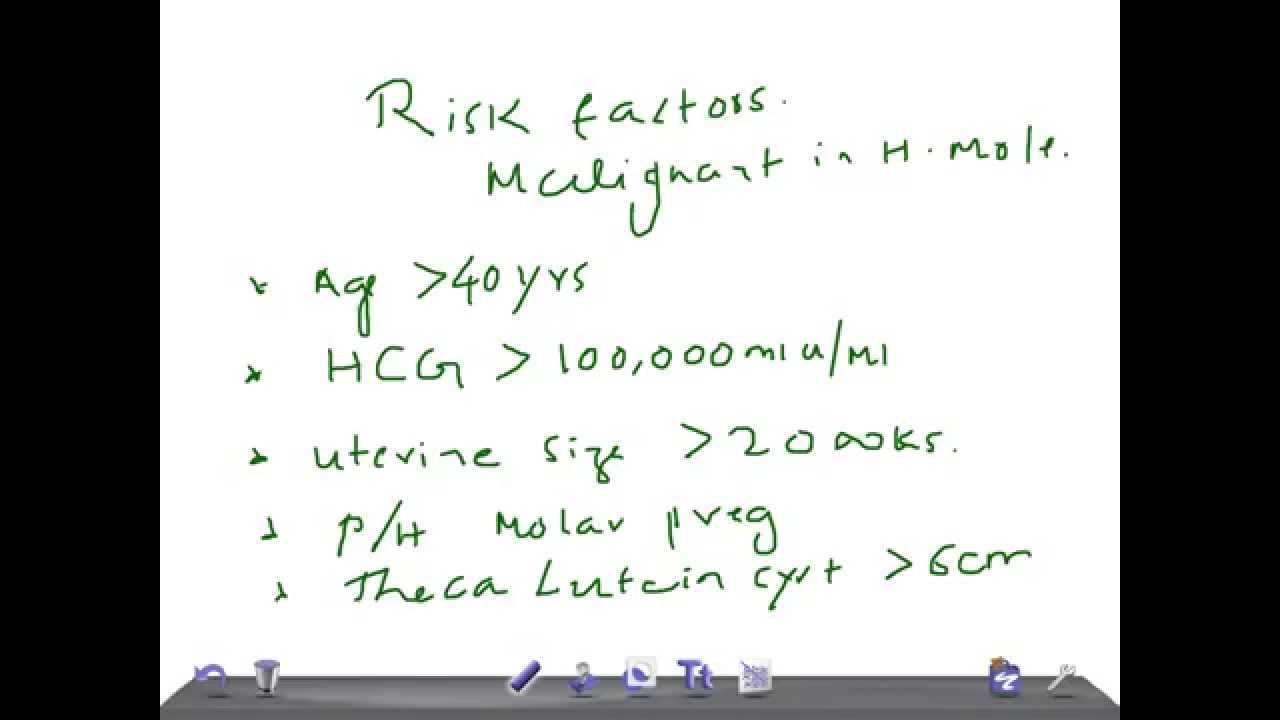 Risk factors.
Malignant in H. Mole.
Age >40yrs
HCG > 100,000 mIu/Ml
uterine size >20 wks.
P/H Molar preg
Theca Lutein cyst >6cm
Tt